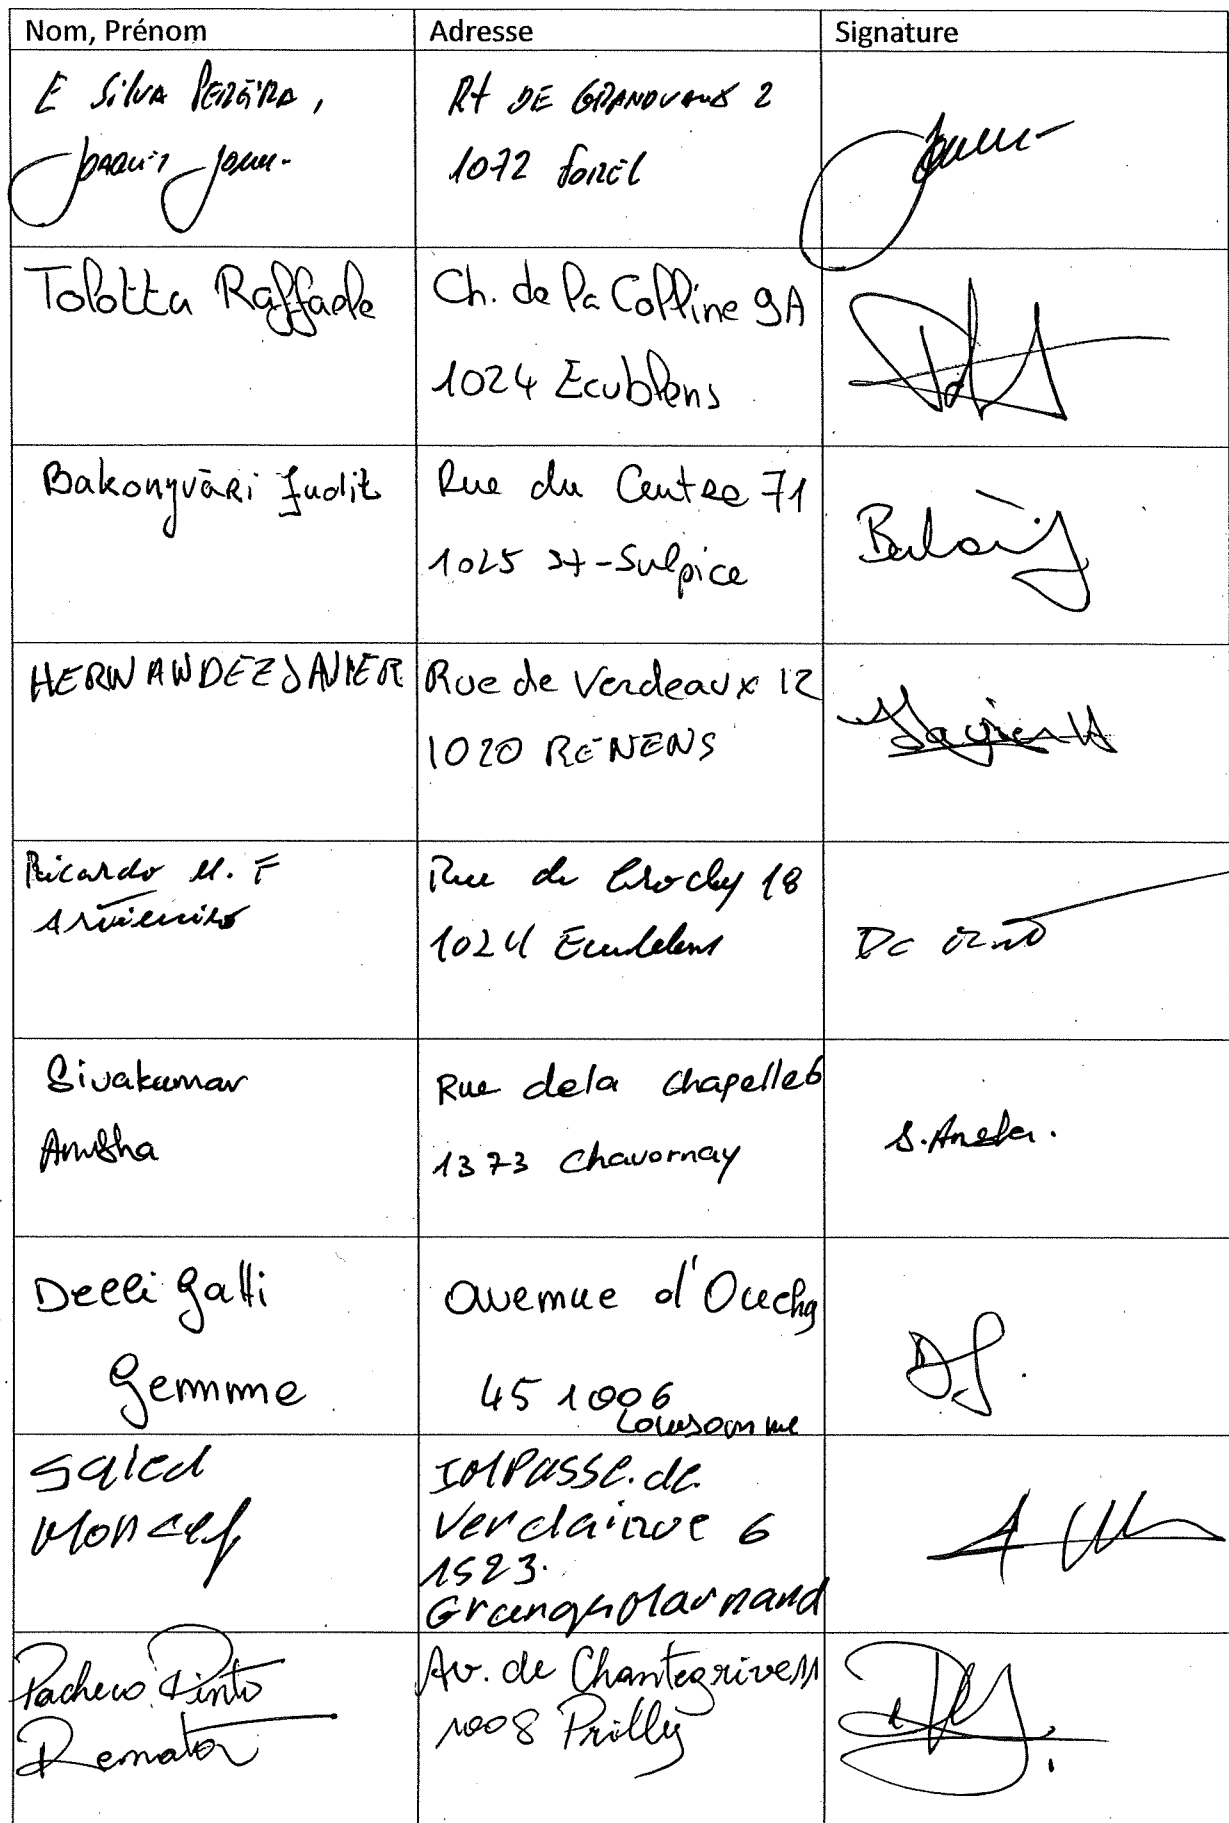 Nom, Prénom Adresse Signature
E SILVA PEREIRA,
RT DE GRANDVAUX 2
1072 FOREL
Tolotta Raffaele
Ch. de la Colline 9A
1024 Ecublens
Bakonyvári Judit
Rue du Centre 71
1025 St-Sulpice
HERNANDEZ JAVIER
Rue de Verdeaux 12
1020 RENENS
Javier H
Ricardo M. F
Rue de 18
1024 Ecublens
Sivakumar
Anusha
Rue dela chapelle 6
1373 Chavornay
S.
Delli Gatti
Gemme
avenue d'Ouchy
45 1006
Lausanne
Saied
Moncef
Impasse. de
6
1523.
Granges Marnand
Pacheco Pinto
Renato
Av. de Chantegrive 11
1008 Prilly